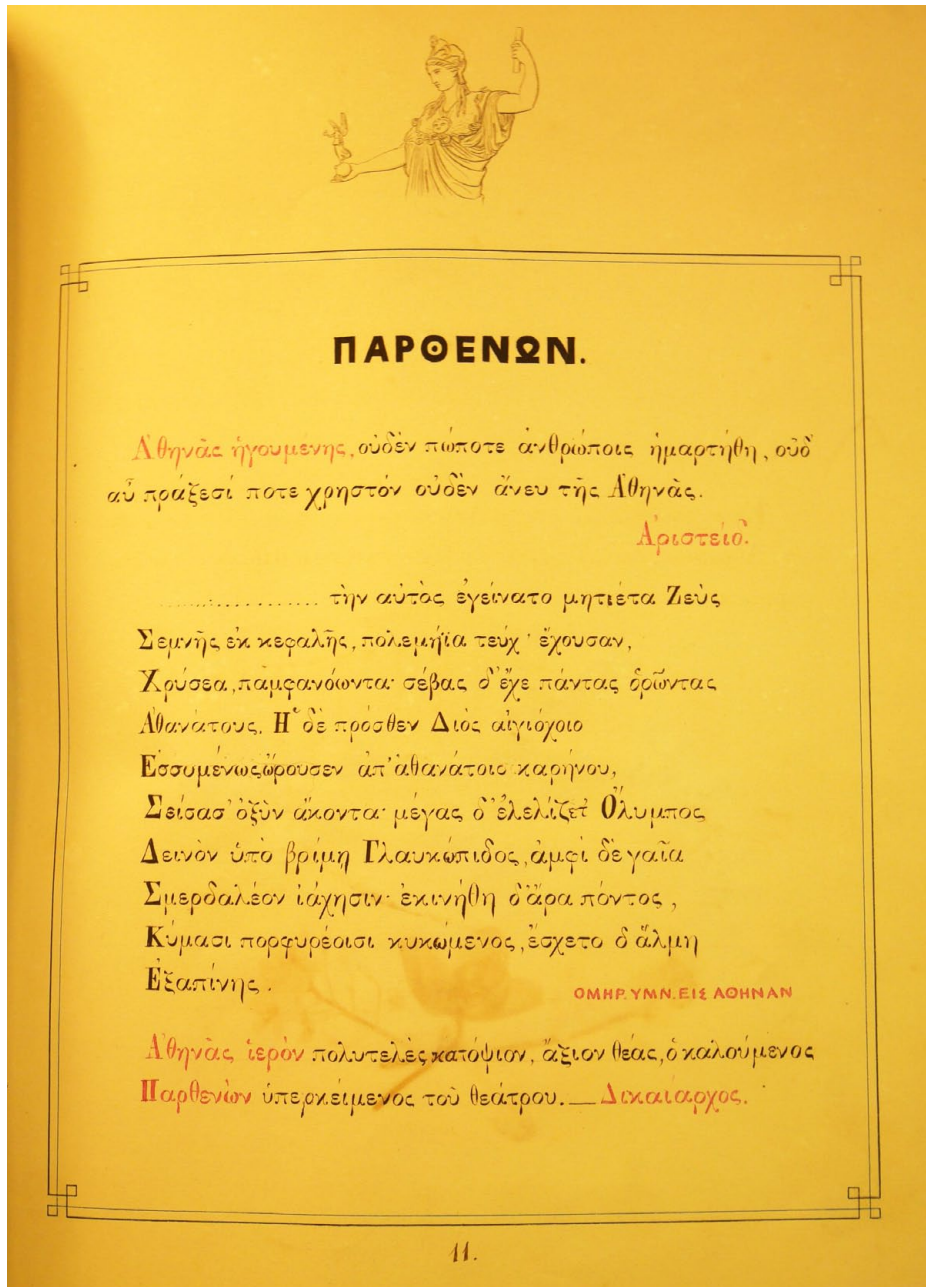 ΠΑΡΘΕΝΩΝ.
Ἀθηνᾶς ἡγουμενης, οὐδὲν πώποτε ἀνθρώποις ἡμαρτήθη, οὐδ'
αὖ πράξεσί ποτε χρηστόν οὐδὲν ἄνευ τῆς Ἀθηνᾶς.
Ἀριστείδ.
................ τὴν αὐτὸς ἐγείνατο μητιέτα Ζεὺς
Σεμνῆς ἐκ κεφαλῆς, πολεμήϊα τεύχ' ἔχουσαν,
Χρύσεα, παμφανόωντα· σέβας δ' ἔχε πάντας ὁρῶντας
Ἀθανάτους. Ἡ δὲ πρόσθεν Διὸς αἰγιόχοιο
Ἐσσυμένως ὤρουσεν ἀπ' ἀθανάτοιο καρήνου,
Σείσασ' ὀξὺν ἄκοντα· μέγας δ' ἐλελίζετ' Ὄλυμπος
Δεινὸν ὑπὸ βρίμῃ Γλαυκώπιδος, ἀμφὶ δὲ γαῖα
Σμερδαλέον ἰάχησιν· ἐκινήθη δ' ἄρα πόντος,
Κύμασι πορφυρέοισι κυκώμενος, ἔσχετο δ' ἅλμη
Ἐξαπίνης.
ΟΜΗΡ. ΥΜΝ. ΕΙΣ ΑΘΗΝΑΝ
Ἀθηνᾶς ἱερὸν πολυτελὲς κατόψιον, ἄξιον θέας, ὁ καλούμενος
Παρθενὼν ὑπερκείμενος τοῦ θεάτρου. — Δικαίαρχος.
11.